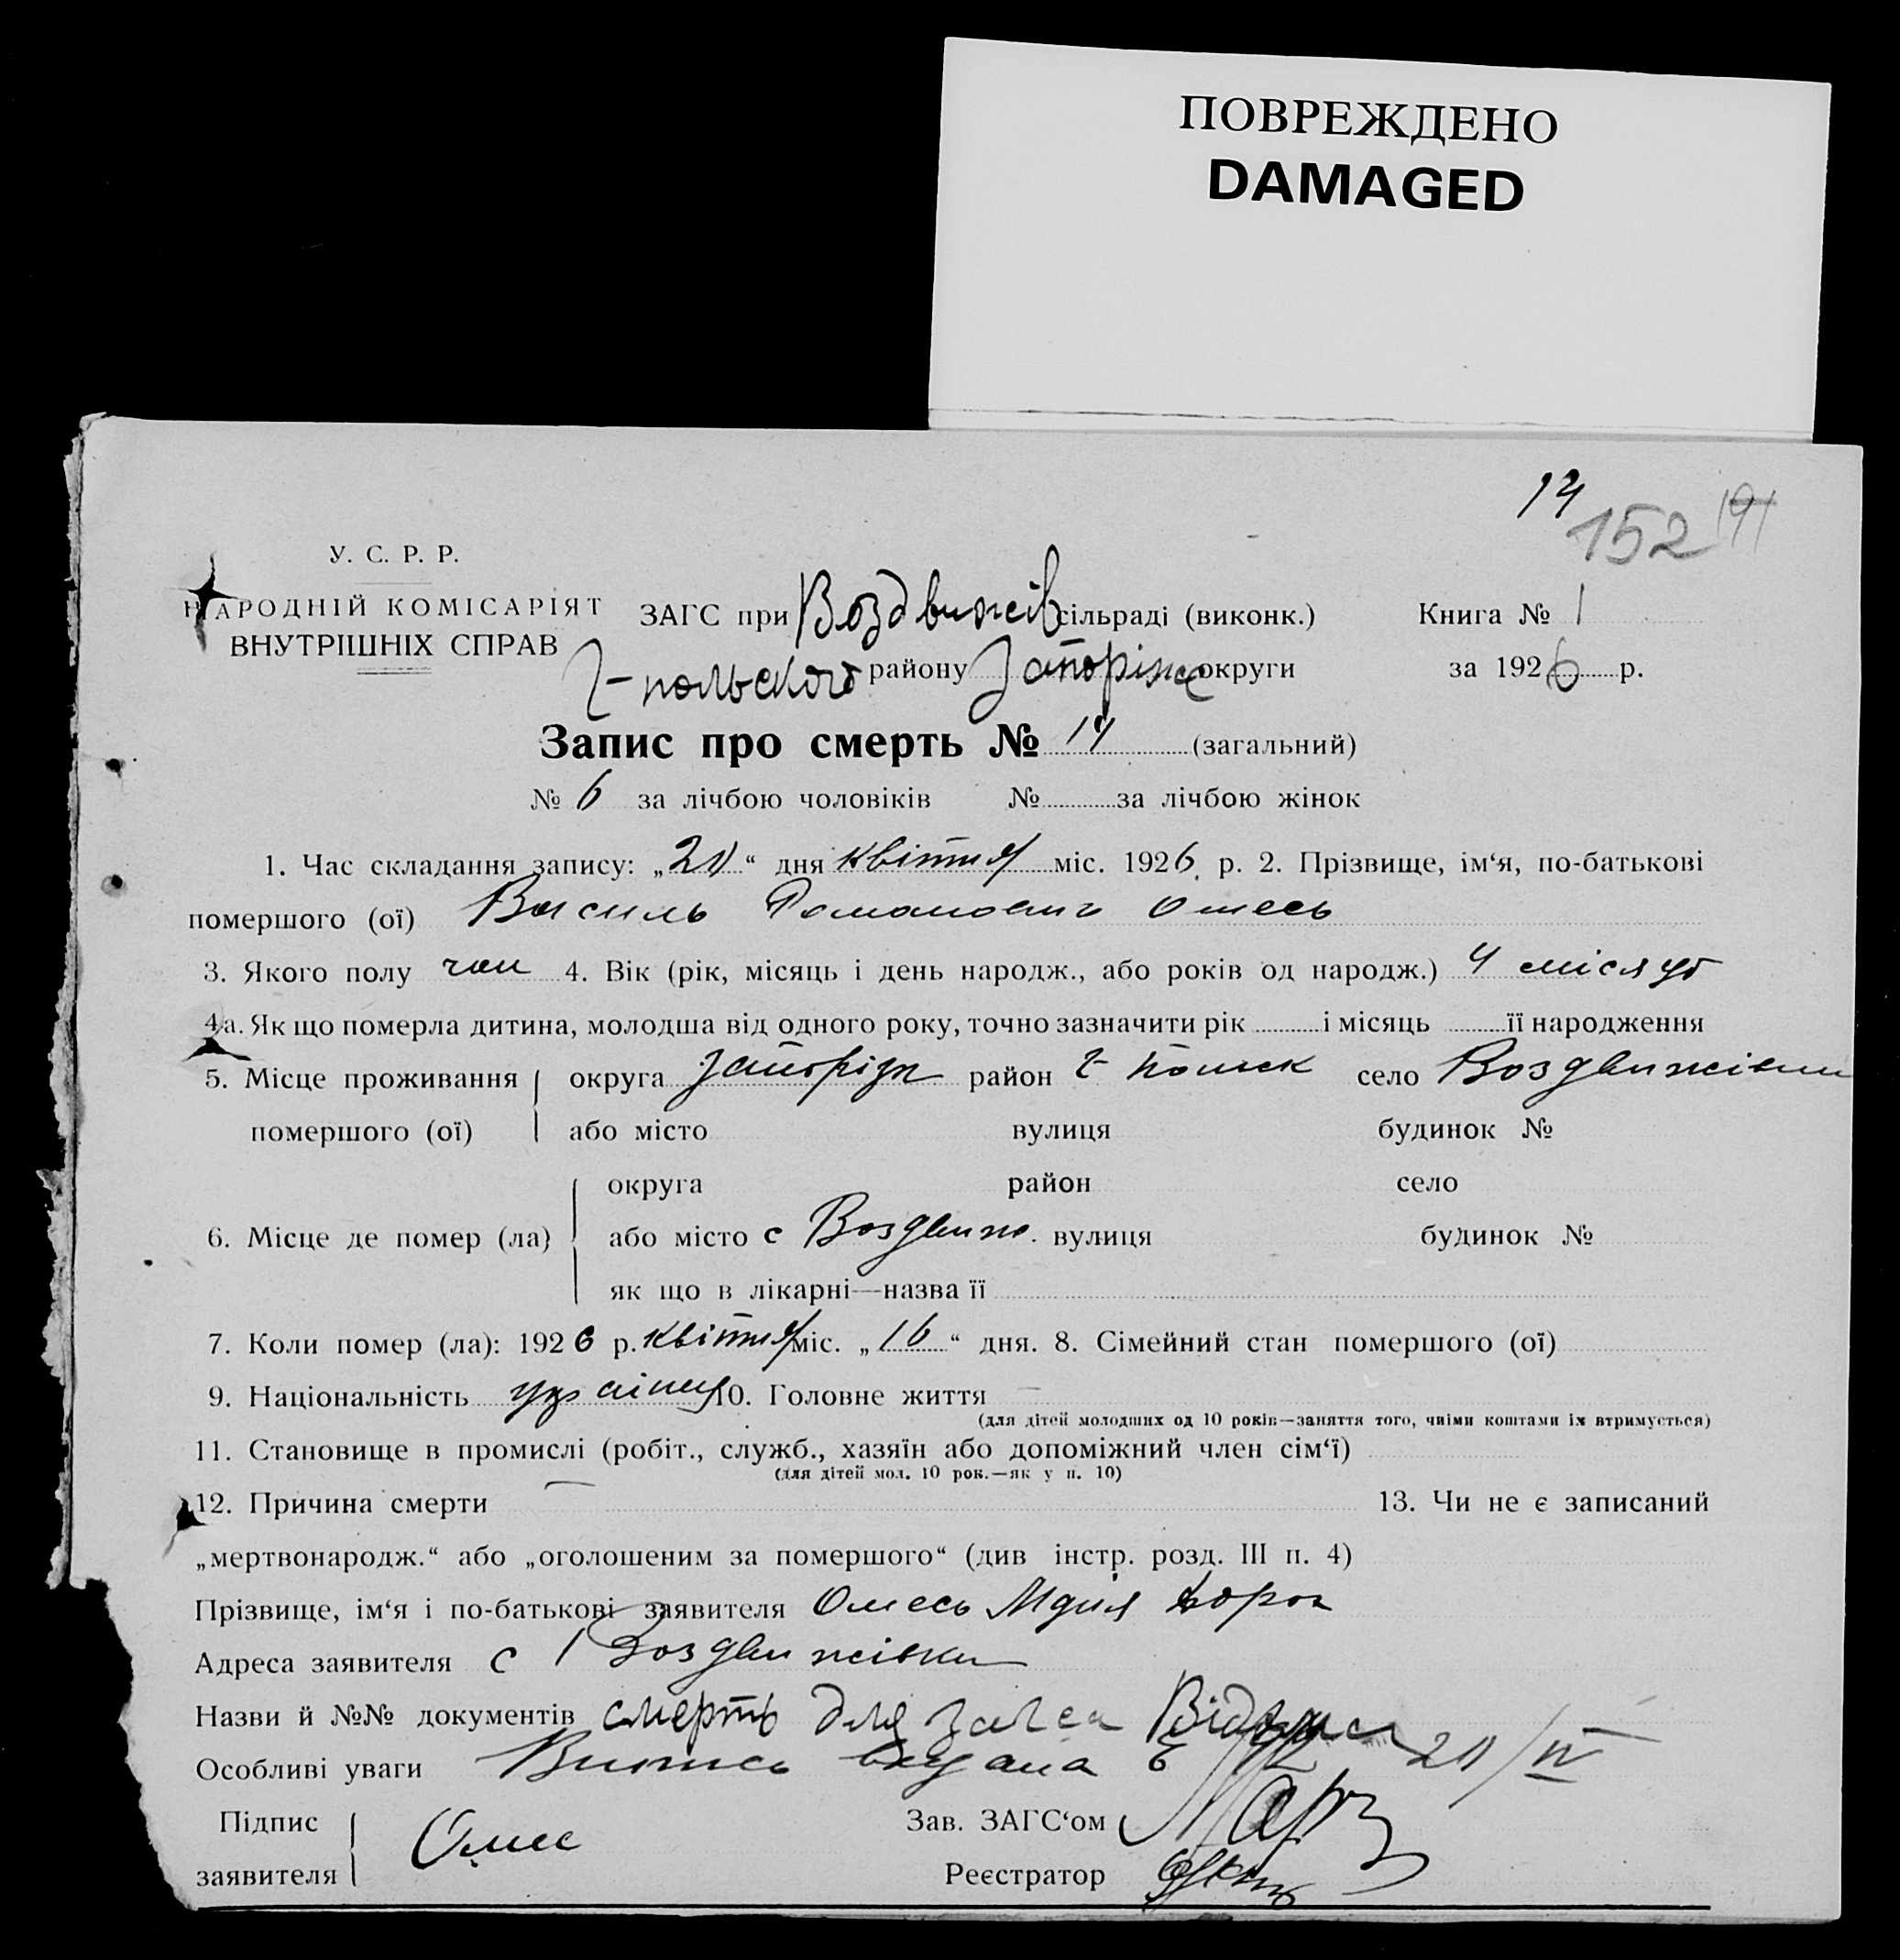 ПОВРЕЖДЕНО
DAMAGED
14
152
191
У. С. Р. Р.
НАРОДНІЙ КОМІСАРІЯТ
ВНУТРІШНІХ СПРАВ
ЗАГС при Воздвижів сільраді (виконк.) Книга № 1
Г-польского району Запоріж округи за 1926 р.
Запис про смерть № 14 (загальний)
№ 6 за лічбою чоловіків № за лічбою жінок
1. Час складання запису: „20“ дня квітня міс. 1926 р. 2. Прізвище, ім‘я, по-батькові
помершого (ої) Василь Романович Омесь
3. Якого полу чол 4. Вік (рік, місяць і день народж., або років од народж.) 4 місяці
4а. Як що померла дитина, молодша від одного року, точно зазначити рік і місяць її народження
5. Місце проживання округа Запоріж район Г- польск село Воздвижівки
помершого (ої) або місто вулиця будинок №
округа район село
6. Місце де помер (ла) або місто с Воздвиж. вулиця будинок №
як що в лікарні—назва її
7. Коли помер (ла): 1926 р. квітня міс. „16“ дня. 8. Сімейний стан помершого (ої)
9. Національність 10. Головне життя —
(для дітей молодших од 10 років—заняття того, чиїми коштами їх втримується)
11. Становище в промислі (робіт., служб., хазяїн або допоміжний член сім‘ї)
(для дітей мол. 10 рок.—як у п. 10)
12. Причина смерти — 13. Чи не є записаний
„мертвонародж.“ або „оголошеним за помершого“ (див інстр. розд. III п. 4)
Прізвище, ім‘я і по-батькові заявителя Омесь
Адреса заявителя с Воздвижівки
Назви й №№ документів смерть для загса
Особливі уваги Випись видана 20/IV
Підпис Зав. ЗАГС‘ом
заявителя Омес Реєстратор